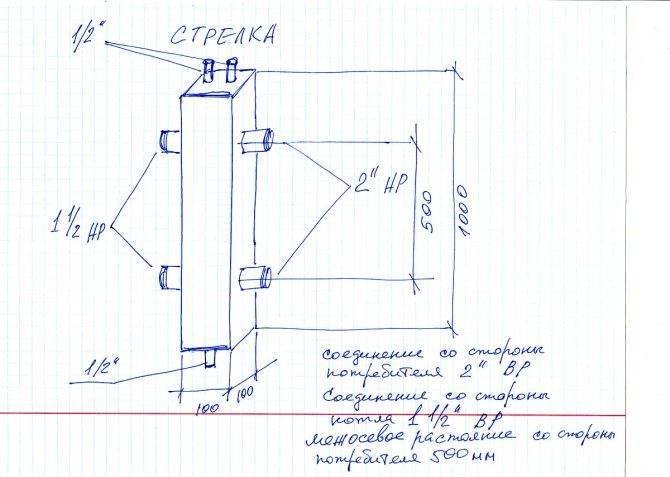 1/2"
СТРЕЛКА
2" НР
1 1/2 НР
500
1000
1/2"
100
100
соединение со стороны
потребителя 2" ВР
Соединение со стороны
котла 1 1/2" ВР
межосевое растояние со стороны
потребителя 500 мм